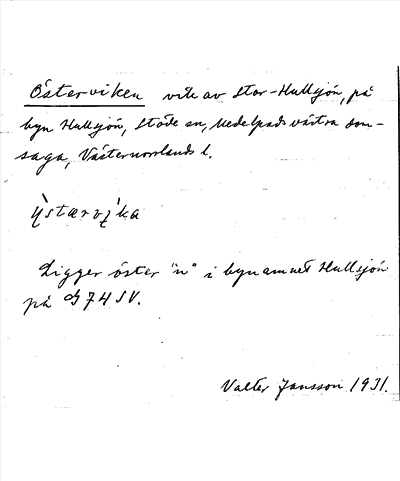 Österviken vik av Stor-Hullsjön, på
byn Hullsjön, Stöde sn, Medelpads västra dom-
saga, Västernorrlands l.
Ligger öster "n" i bynamnet Hullsjön
på G 74 SV.
Valter Jansson 1931.